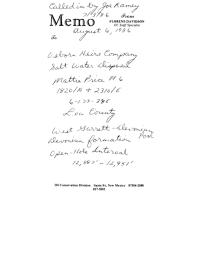 Called in by Joe Ramey
7/31/86
Memo
From
FLORENE DAVIDSON
OC Staff Specialist
August 6, 1986
To
Osborn Heirs Company
Salt Water Disposal
Mattie Price # 6
1820/N + 2310/E
Lea County
West Garrett-Devonian Pool
Devonian formation
Open-Hole Interval
Oil Conservation Division Santa Fe, New Mexico 87504-2088